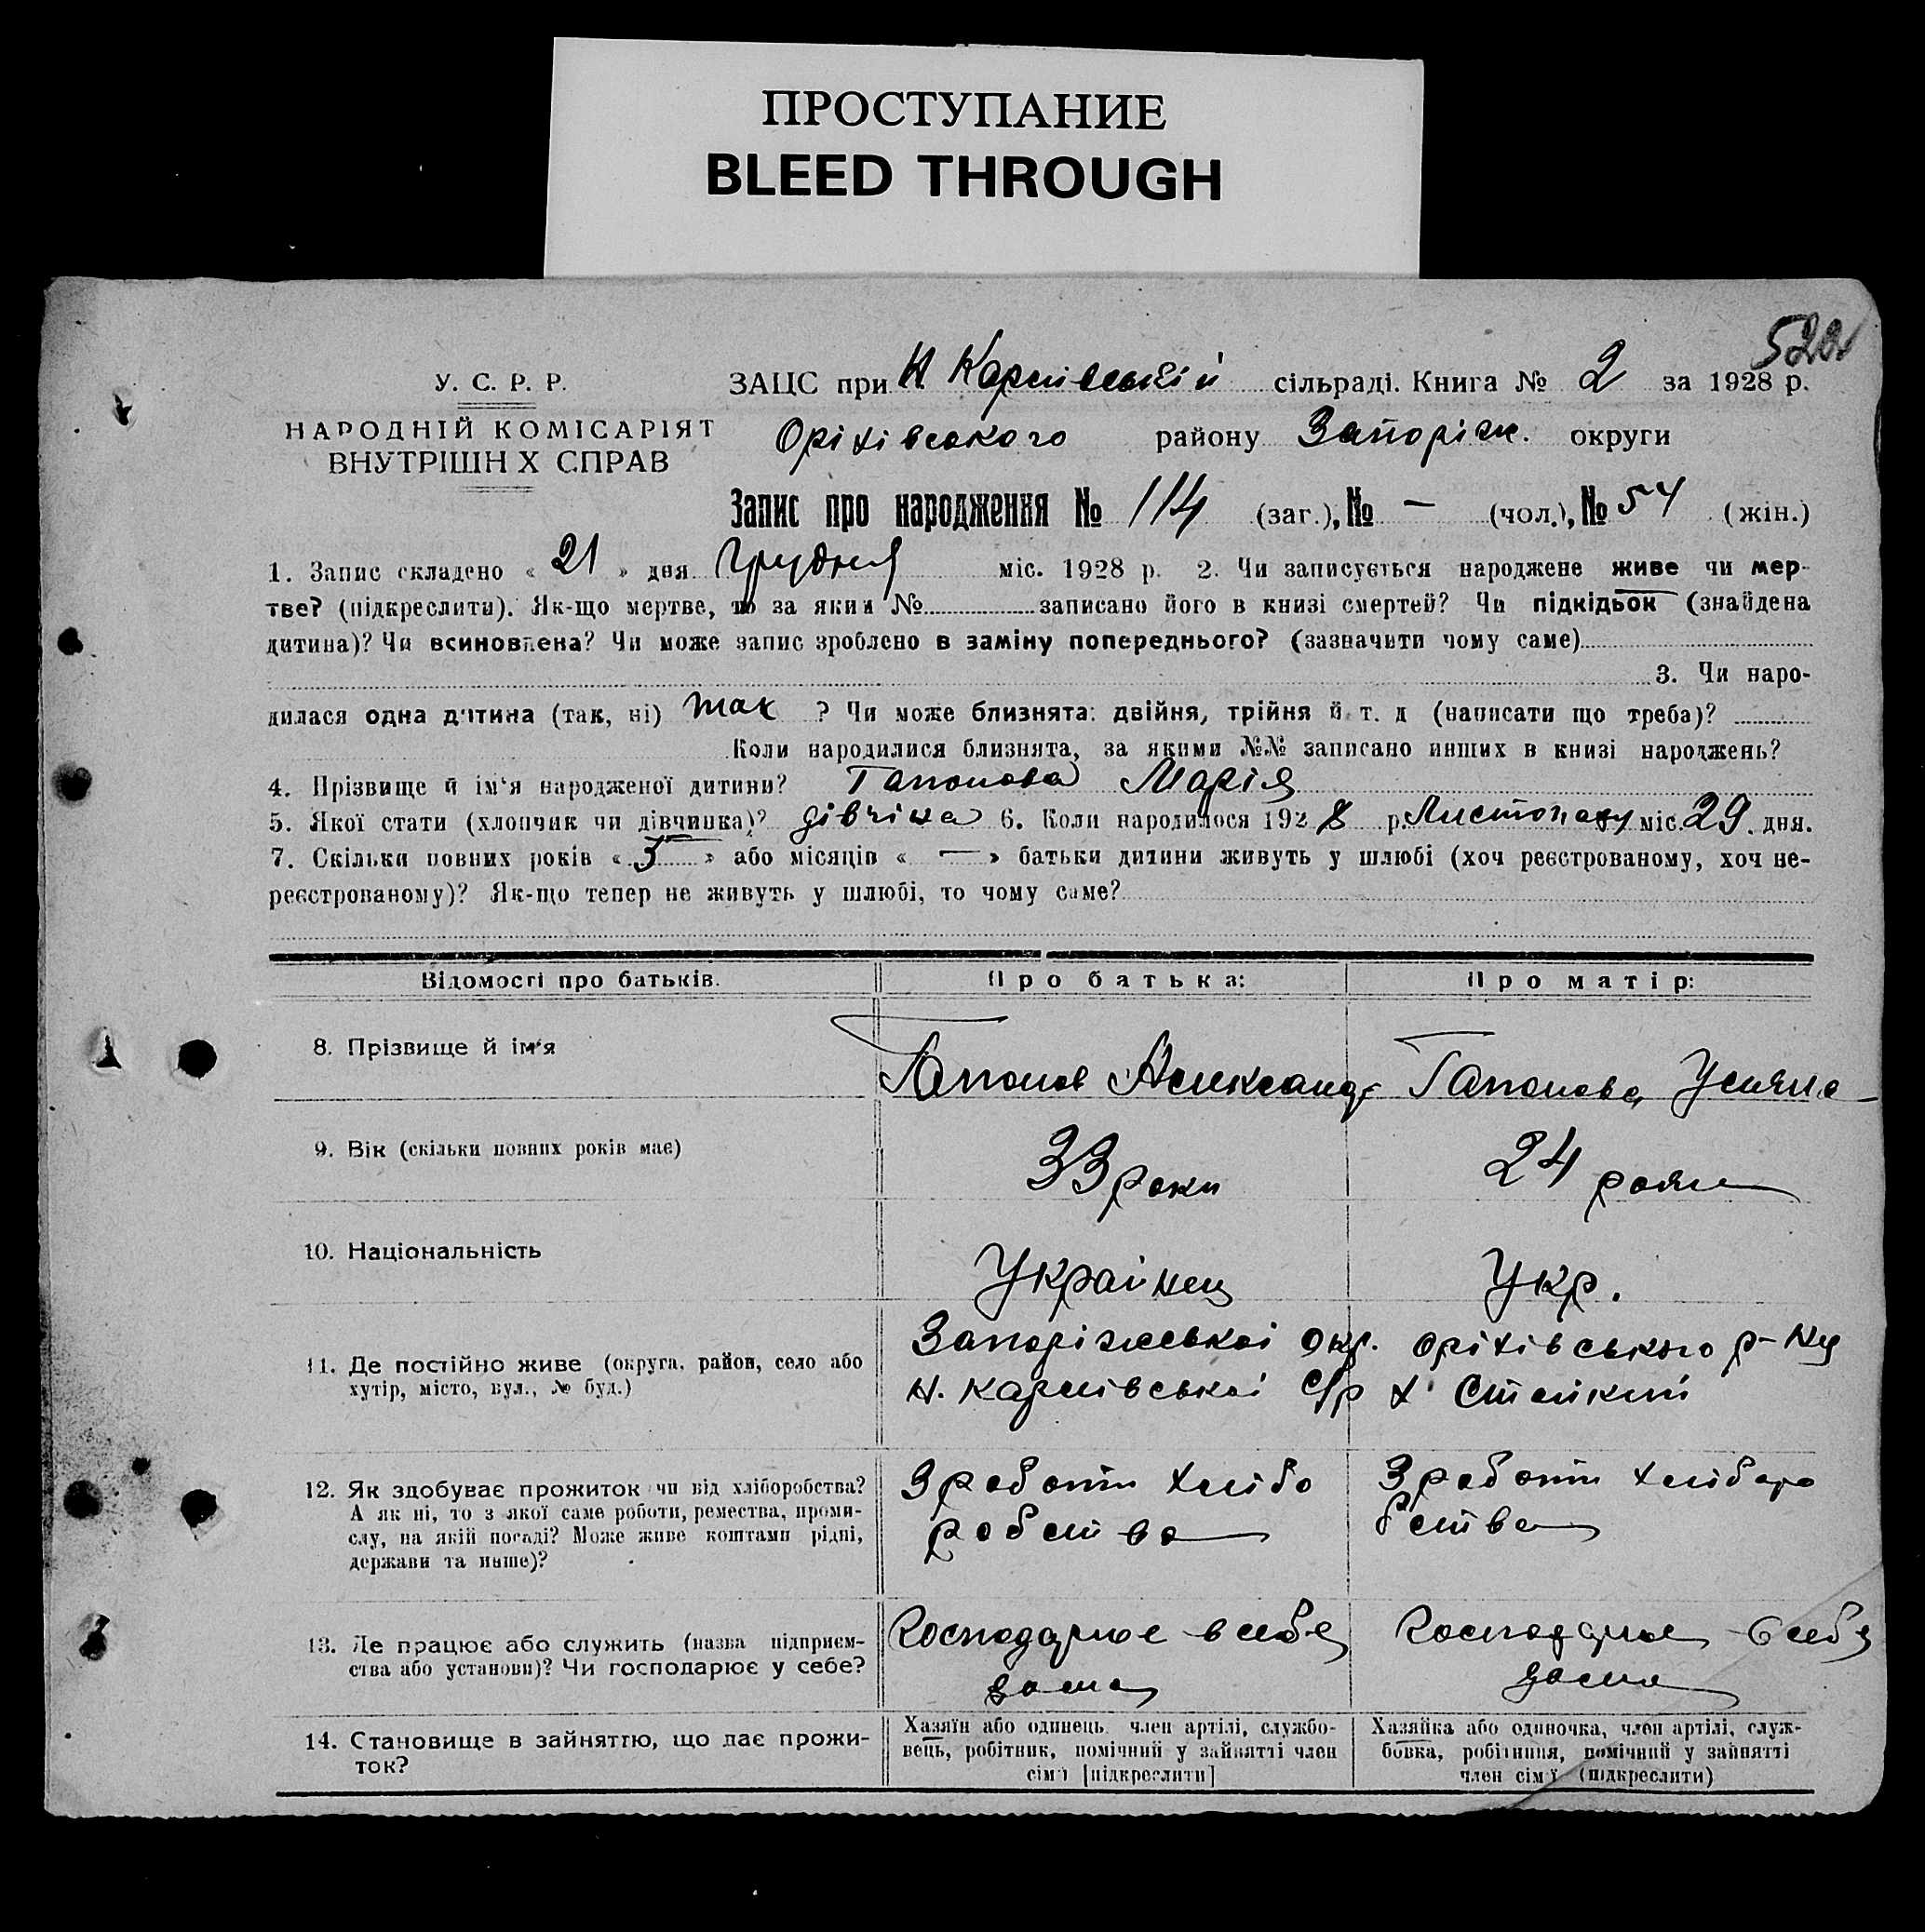 ПРОСТУПАНИЕ
BLEED THROUGH
522
У. С. Р. Р.
НАРОДНІЙ КОМІСАРІЯТ
ВНУТРІШН Х СПРАВ
ЗАЦС при Н Карлівській сільраді. Книга № 2 за 1928 р.
Оріхівського району Запоріж. округи
Запис про народження № 114 (заг.), № — (чол.), № 54 (жін.)
1. Запис складено « 21 » дня Грудня міс. 1928 р. 2. Чи записується народжене живе чи мер-
тве? (підкреслити). Як-що мертве, то за яким № записано його в книзі смертей? Чи підкідьок (знайдена
дитина)? Чи всиновлена? Чи може запис зроблено в заміну попереднього? (зазначити чому саме)
3. Чи наро-
дилася одна дитина (так, ні) так ? Чи може близнята: двійня, трійня й т. д (написати що треба)?
Коли народилися близнята, за якими №№ записано инших в книзі народжень?
4. Прізвище й ім'я народженої дитини? Гапонова Марія
5. Якої стати (хлопчик чи дівчинка)? дівчіна 6. Коли народилося 1928 р. Листопаду міс. 29. дня.
7. Скільки повних років « 5 » або місяців « — » батьки дитини живуть у шлюбі (хоч реєстрованому, хоч не-
реєстрованому)? Як-що тепер не живуть у шлюбі, то чому саме?
Відомості про батьків. Про батька: Про матір:
8. Прізвище й ім'я Гапонов Александр Гапонова Уляна
9. Вік (скільки повних років має) 33 роки 24 роки
10. Національність Українец Укр.
11. Де постійно живе (округа, район, село або
хутір, місто, вул., № буд.)
Запоріжської окр. Оріхівського р-ну
Н. Карлівської с/р х
12. Як здобуває прожиток чи від хліборобства?
А як ні, то з якої саме роботи, ремества, проми-
слу, на якій посаді? Може живе коштами рідні,
держави та инше)?
З работи хлібо
робства
З работи хліборо
бства
13. Де працює або служить (назва підприєм-
ства або установи)? Чи господарює у себе?
Господарює в себе
дома
Господарює в себе
дома
14. Становище в зайняттю, що дає прожи-
ток?
Хазяїн або одинець, член артілі, службо-
вець, робітник, помічний у зайнятті член
сім'ї [підкреслити]
Хазяйка або одиночка, член артілі, служ-
бовка, робітниця, помічний у зайнятті
член сім'ї (підкреслити)